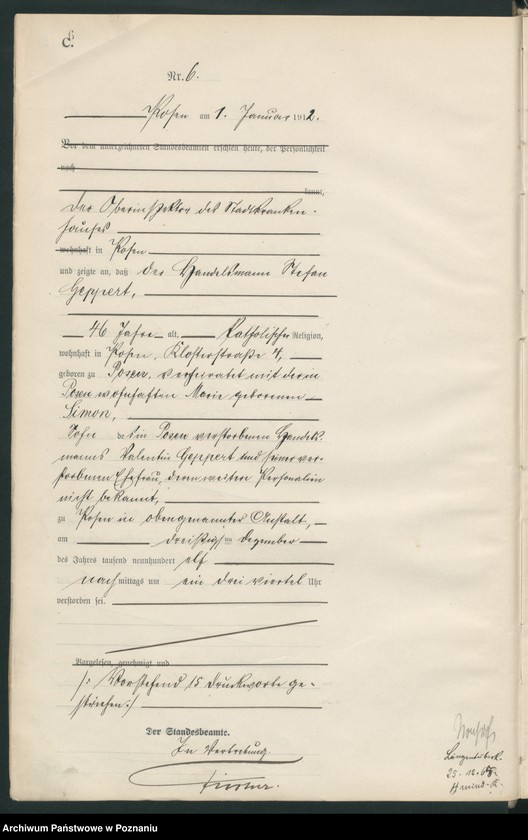 C.
Nr. 6.
Posen am 1. Januar 1912.
Vor dem unterzeichneten Standesbeamten erschien heute, der Persönlichkeit
nach
kannt,
Der Oberinspektor des Stadtkranken-
hauses
wohnhaft in Posen
und zeigte an, daß der Handelsmann Stefan
Geppert,
46 Jahre alt, Katholischer Religion,
wohnhaft in Posen, Klosterstraße 4,
geboren zu Posen, verheiratet mit der in
Posen wohnhaften Marie geborenen
Simon,
Sohn des in Posen verstorbenen Handels-
manns Valentin Geppert und seiner ver-
storbenen Ehefrau, deren weitere Personalien
nicht bekannt,
zu Posen in obengenannter Anstalt,
am dreißigsten Dezember
des Jahres tausend neunhundert elf
nachmittags um ein drei viertel Uhr
verstorben sei.
Vorgelesen, genehmigt und
/: Vorstehend 15 Druckworte ge-
strichen :/
Der Standesbeamte.
In Vertretung.
25.12.
Archiwum Państwowe w Poznaniu